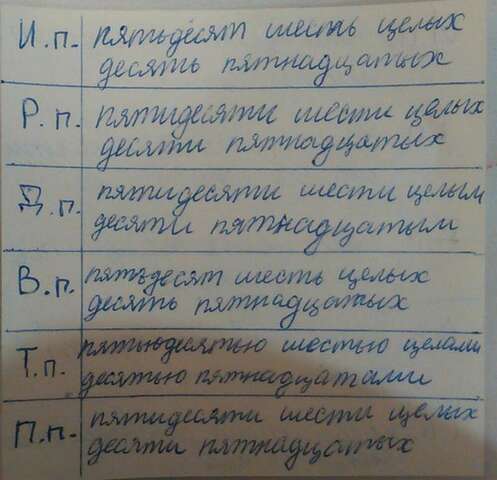 И.п. пятьдесят шесть целых
десять пятнадцатых
Р.п. пятидесяти шести целых
десяти пятнадцатых
Д.п. пятидесяти шести целым
десяти пятнадцатым
В.п. пятьдесят шесть целых
десять пятнадцатых
Т.п. пятьюдесятью шестью целами
десятью пятнадцатами
П.п. пятидесяти шести целых
десяти пятнадцатых